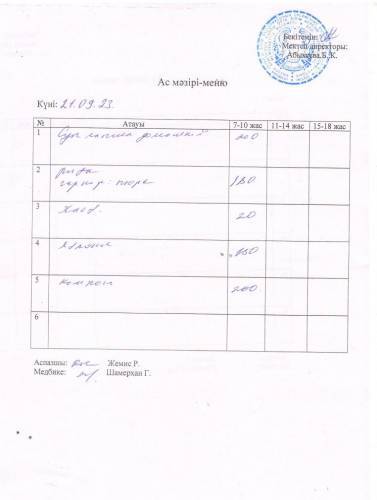 Бекітемін:
Мектеп директоры:
Абыкаева.Б.К.
Ас мәзірі-меню
Күні: 21.09.23.
№ Атауы 7-10 жас 11-14 жас 15-18 жас
1 Суп лапша домашний 200
2 рыба
гарнир: пюре 180
3 Хлеб. 20
4 Яблоки 150
5 компот 200
6
Аспазшы: Жемис Р.
Медбике: Шамерхан Г.